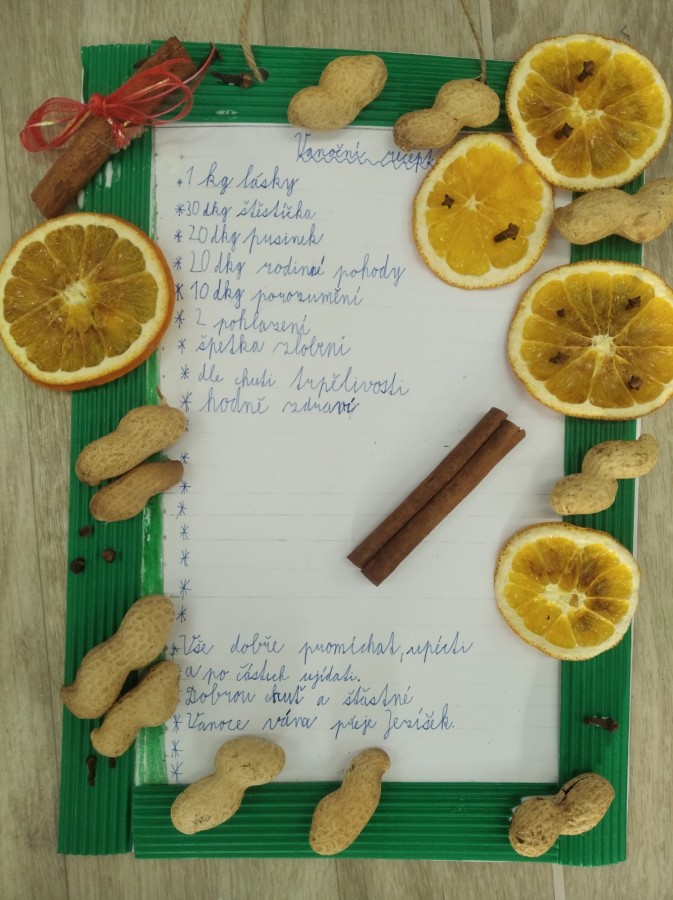 Vanoční recept
1 kg lásky
* 30 dkg štěstíčka
* 20 dkg pusinek
* 20 dkg rodinné pohody
* 10 dkg porozumění
* 2 pohlazení
* špetka zlobení
* dle chuti trpělivosti
* hodně zdraví
*
*
*
*
*
*
*
* Vše dobře promíchat, upécti
* a po částech ujídati.
* Dobrou chuť a šťastné
* Vanoce váma přeje Jezíšek.
*
*